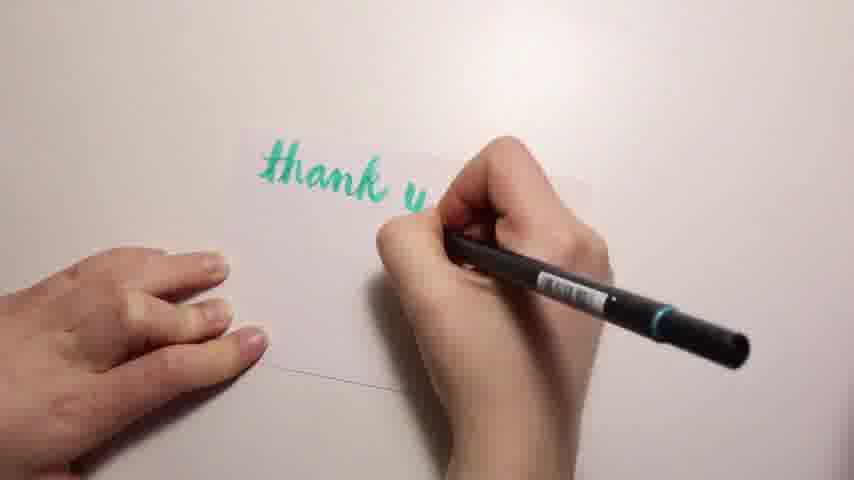 thank u